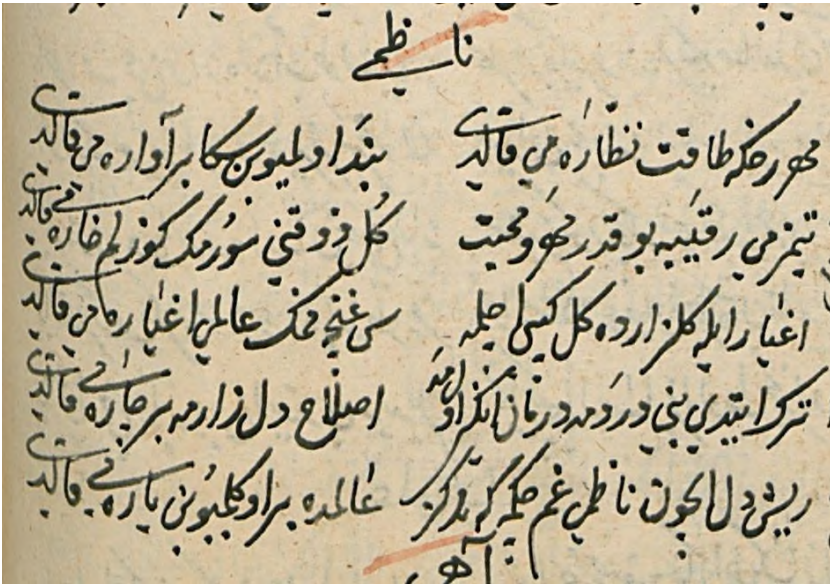 ناظمی
مهر رخكه طاقت نظاره می قالدی بند اولمیون سكا بر آواره می قالدی
یتمزمی رقیبه بو قدر مهر و محبت كل ذوقنی سورمك كوزلم خاره می قالدی
اغیار ایله كلزارده كل كیبی اچلمه سن غنچه فمك عالمی اغیاره می قالدی
ترك ایتدی بنی دردمه درمان اولمه اصلاح دل زارمه بر چاره می قالدی
ریش دل ایچون ناظمی غم چكمه كه عالمده بر اوكلمیون یاره می قالدی